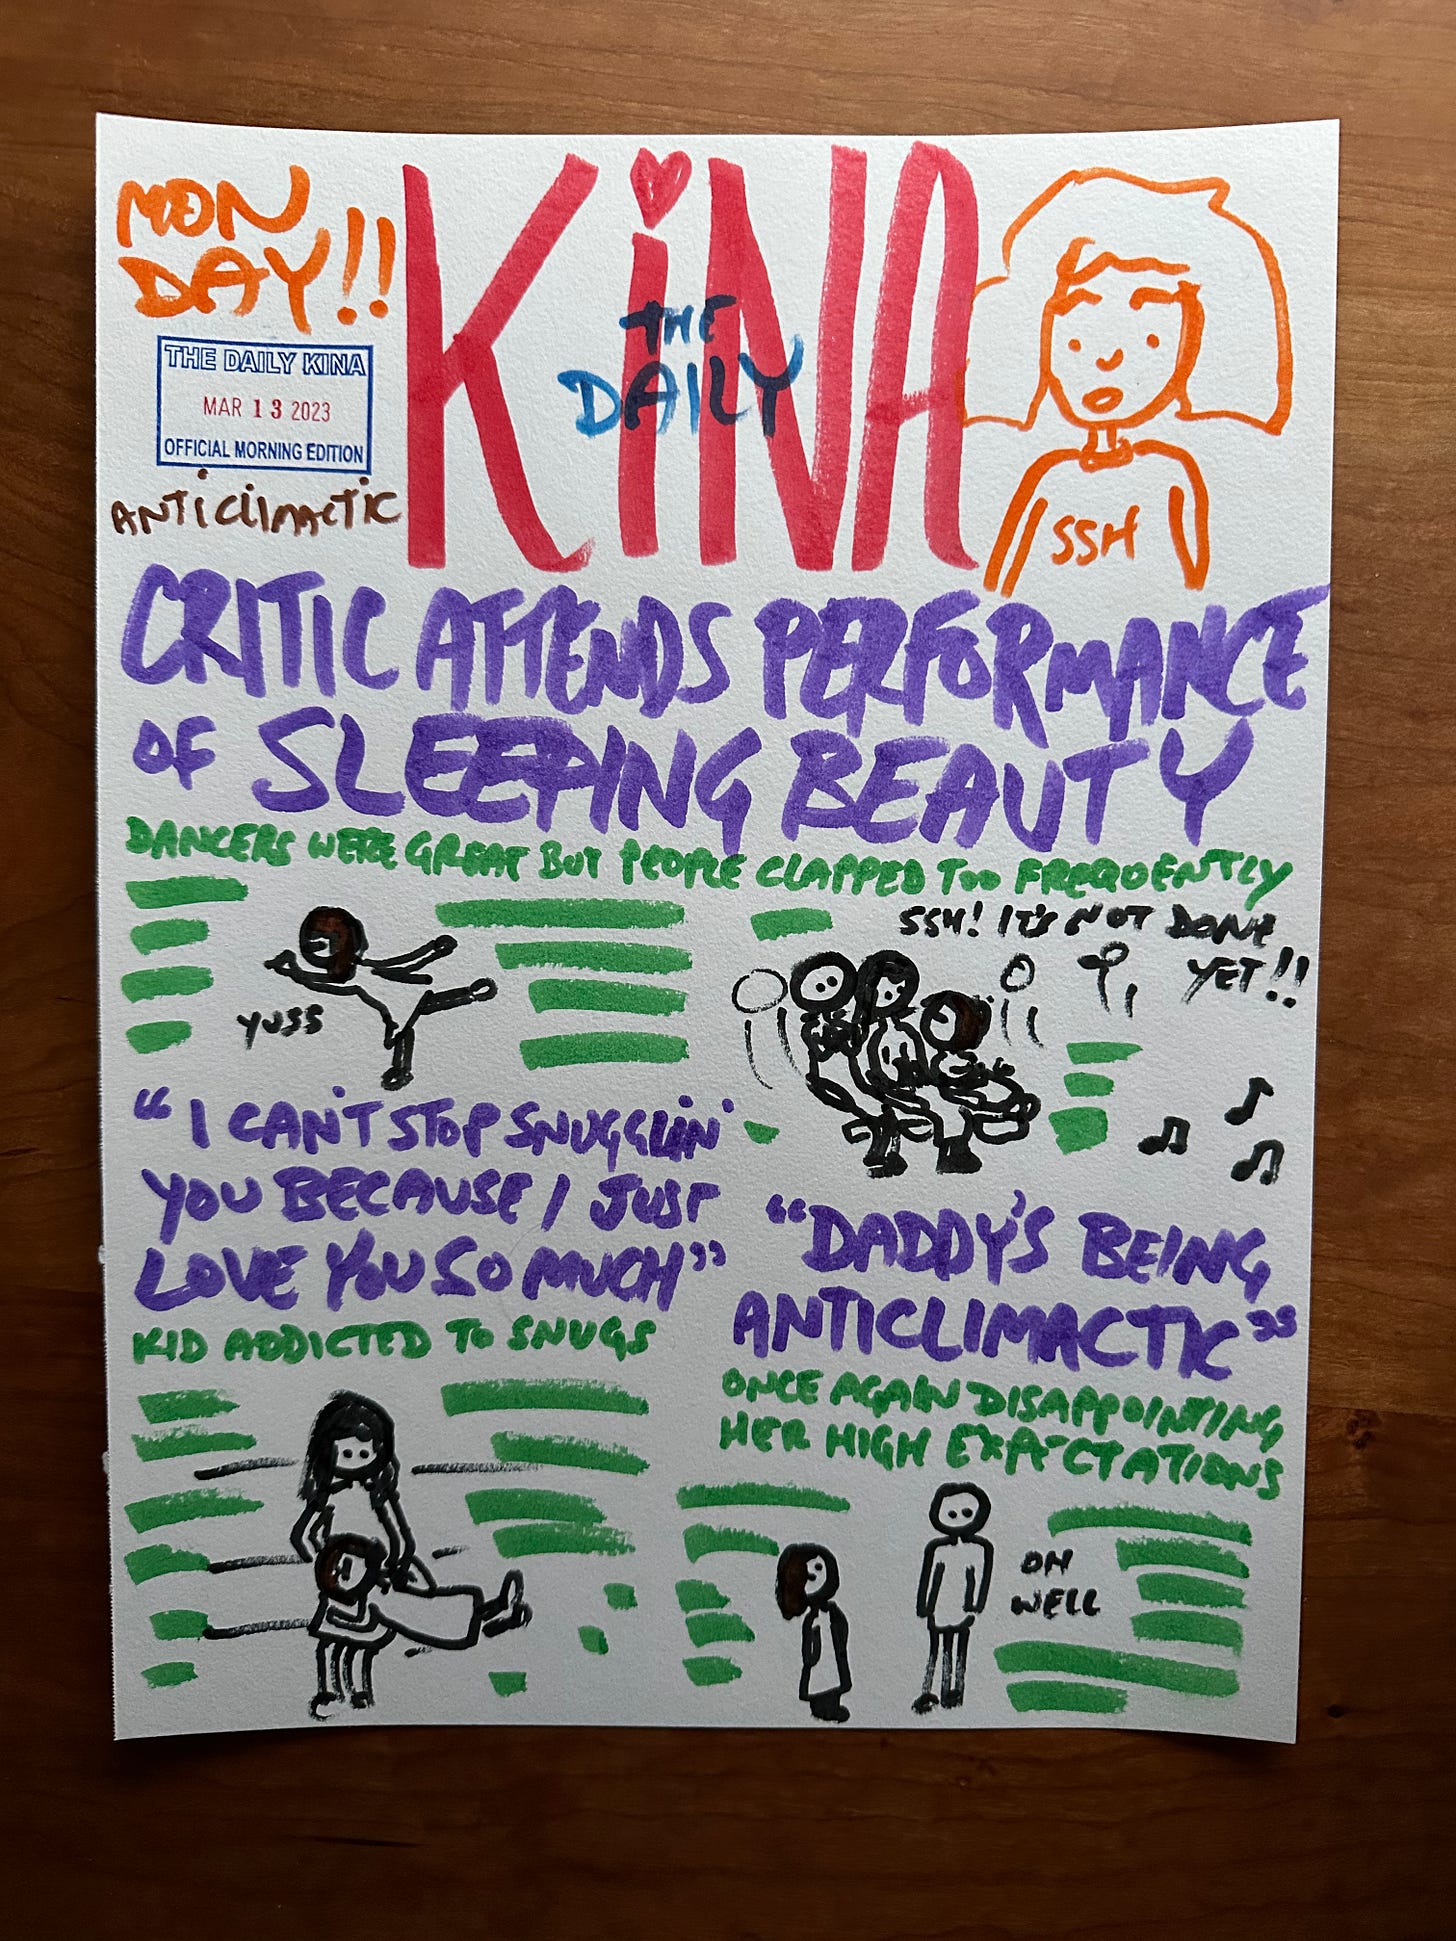 MON
DAY!!
KiNA
THE
DAILY
THE DAILY KINA
MAR 13 2023
OFFICIAL MORNING EDITION
ANTiCliMACTiC
SSH
CRITIC ATTENDS PERFORMANCE
OF SLEEPING BEAUTY
DANCERS WERE GREAT BUT PEOPLE CLAPPED TOO FREQUENTLY
YUSS
SSH! IT'S NOT DONE
YET!!
"I CAN'T STOP SNUGGLIN'
YOU BECAUSE I JUST
LOVE YOU SO MUCH"
KID ADDICTED TO SNUGS
"DADDY'S BEING
ANTICLIMACTIC"
ONCE AGAIN DISAPPOINTING
HER HIGH EXPECTATIONS
OH
WELL